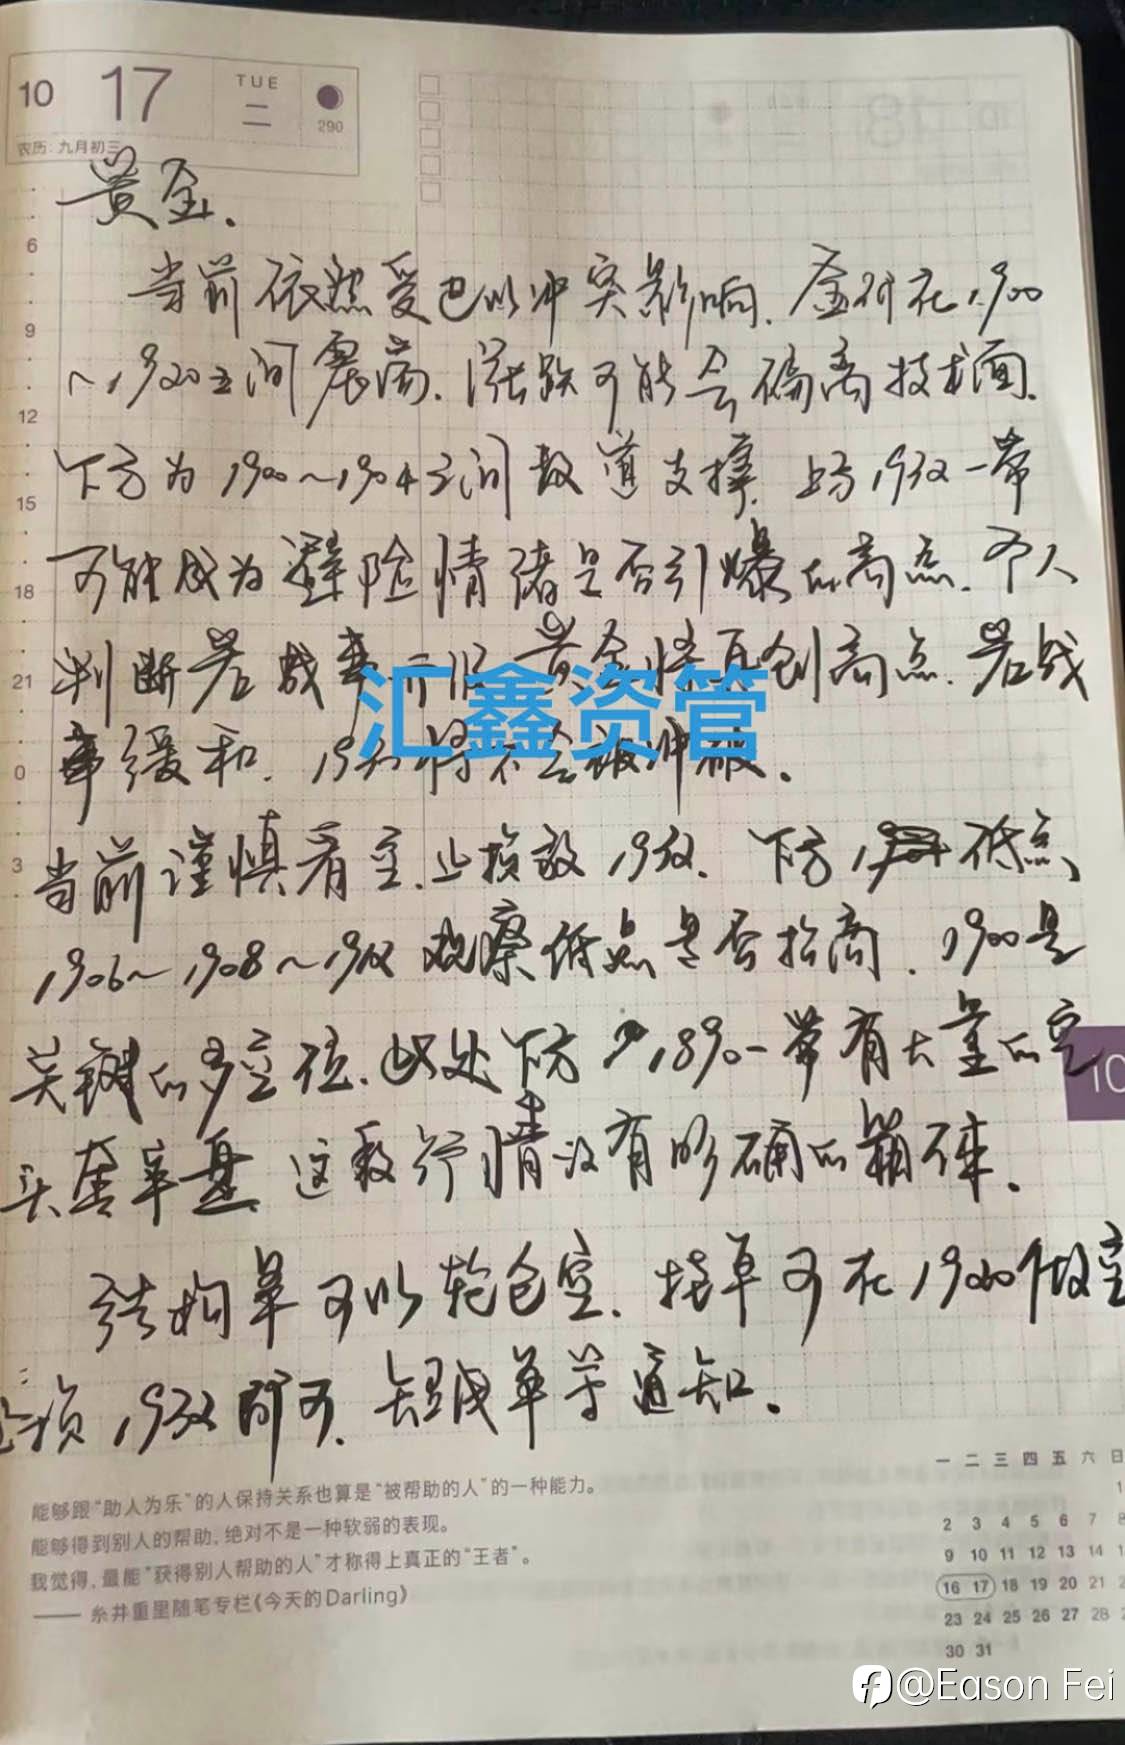 10 17 TUE 二 290
农历:九月初三
黄金.
当前依然受巴以冲突影响.金价在1900
~1920之间震荡.涨跌可能会偏离技术面.
下方为1900~1904之间数道支撑.上方1932一带
可能成为避险情绪是否引爆的高点.个人
判断若战事升旧黄金将再创高点.若战
事缓和.193将不会被冲破.
当前谨慎看空.止损放1932.下方低点
1906~1908~1912观察低点是否抬高.1900是
关键的多空位.此处下方1890一带有大量的空
头套牢盘这段行情没有明确的箱体.
结构单可以轻仓空.挂单可在1920做空
止损1932即可.短线单等通知.
汇鑫资管
6
9
12
15
18
21
0
3
10
能够跟“助人为乐”的人保持关系也算是“被帮助的人”的一种能力。
能够得到别人的帮助,绝对不是一种软弱的表现。
我觉得,最能“获得别人帮助的人”才称得上真正的“王者”。
—— 糸井重里随笔专栏《今天的Darling》
一 二 三 四 五 六 日
1
2 3 4 5 6 7 8
9 10 11 12 13 14
16 17 18 19 20 21
23 24 25 26 27 28
30 31
@Eason Fei